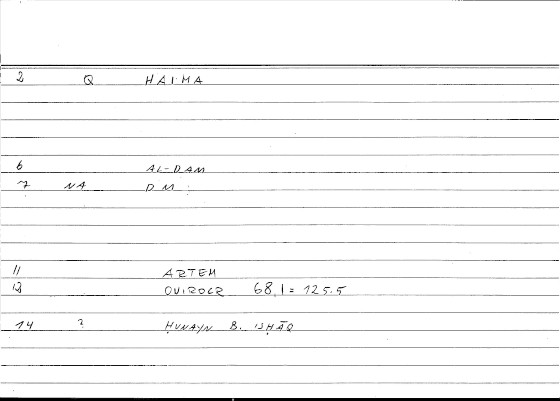 2 Q HAIMA
6 AL-DAM
7 NA DM
11 ARTEM
12
68,1 = 125.5
14 ? ḤUNAYN B. ISḤĀQ